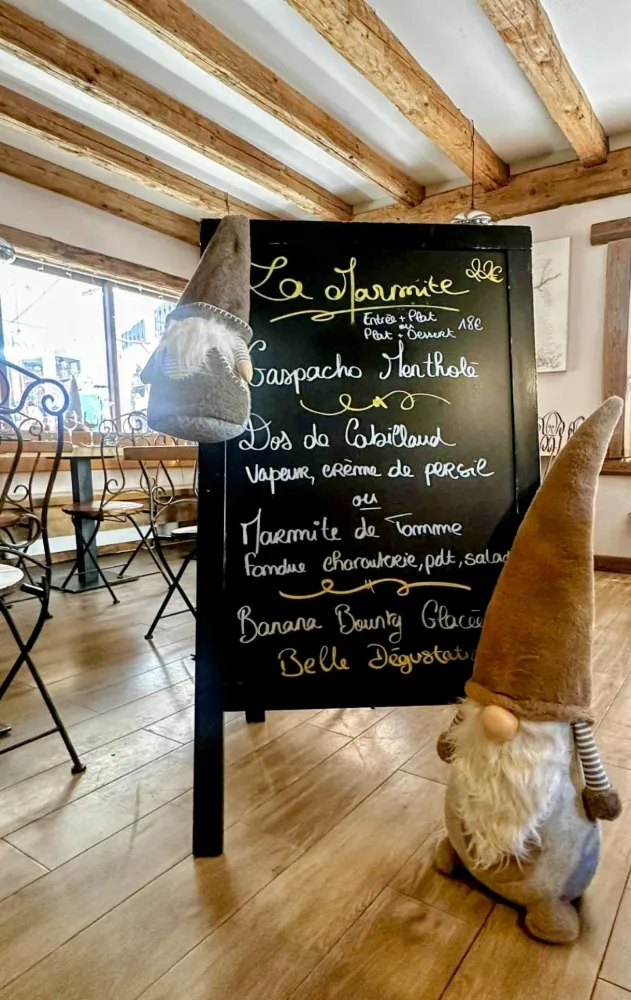 La Marmite 22€
Entrée + Plat
ou
Plat + Dessert 18€
Gaspacho Mentholé
Dos de Cabillaud
Vapeur, crème de persil
ou
Marmite de Tomme
Fondue charcuterie, pdt, salad
Banana Bounty Glacée
Belle Dégustati